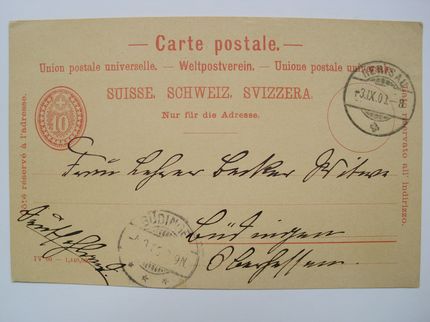 — Carte postale. —
Union postale universelle. — Weltpostverein. — Unione postale universale.
SUISSE. SCHWEIZ. SVIZZERA.
Nur für die Adresse.
Côté réservé à l'adresse.
10
Lato riservato all'indirizzo.
HERISAU
Frau Lehrer Becker Witwe
Büdingen
Oberhessen.
Deutschland.
BÜDINGEN